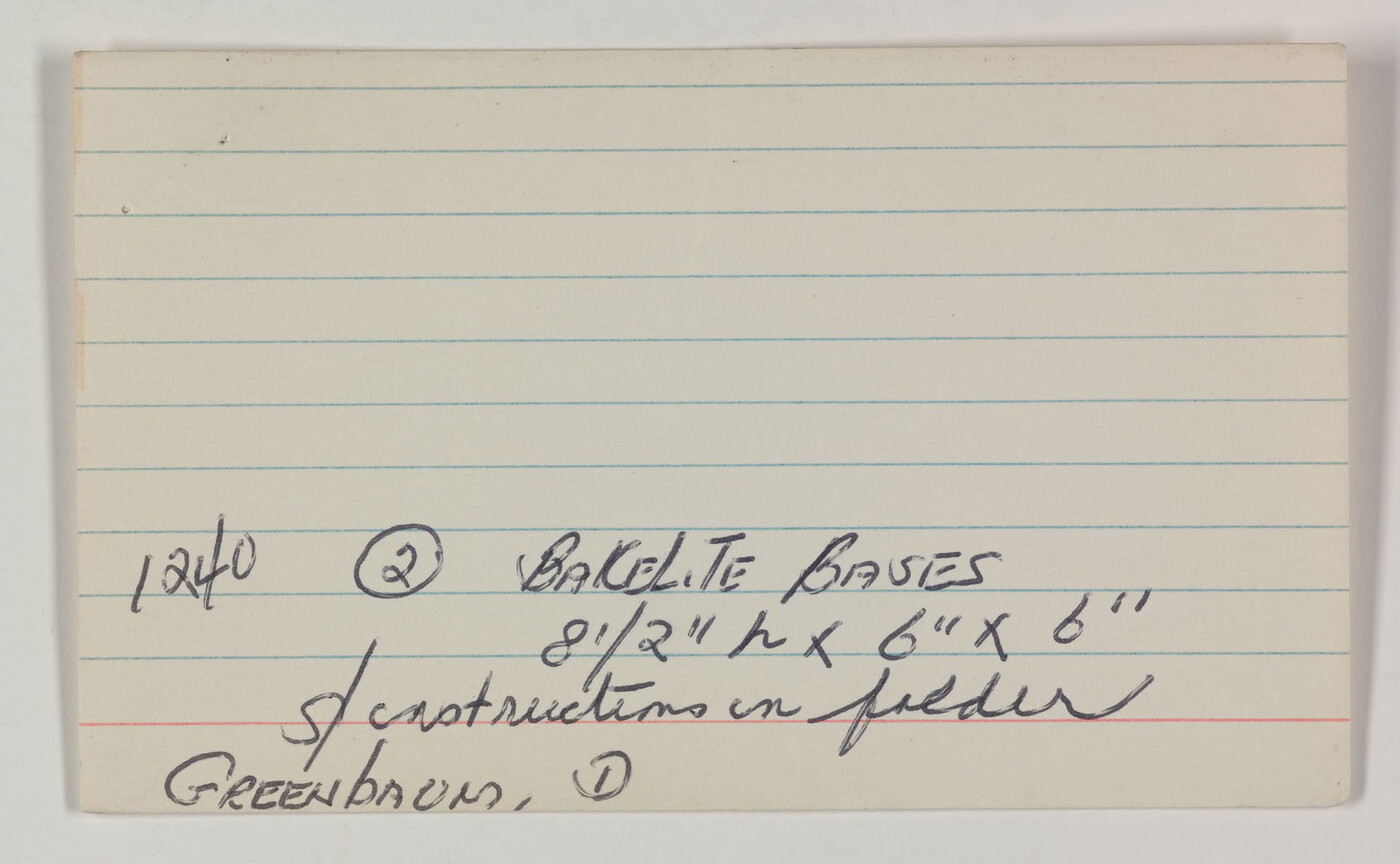 1240 ② BAKELITE BASES
8 1/2" h x 6" x 6"
s/ instructions in folder
GREENBAUM, ①